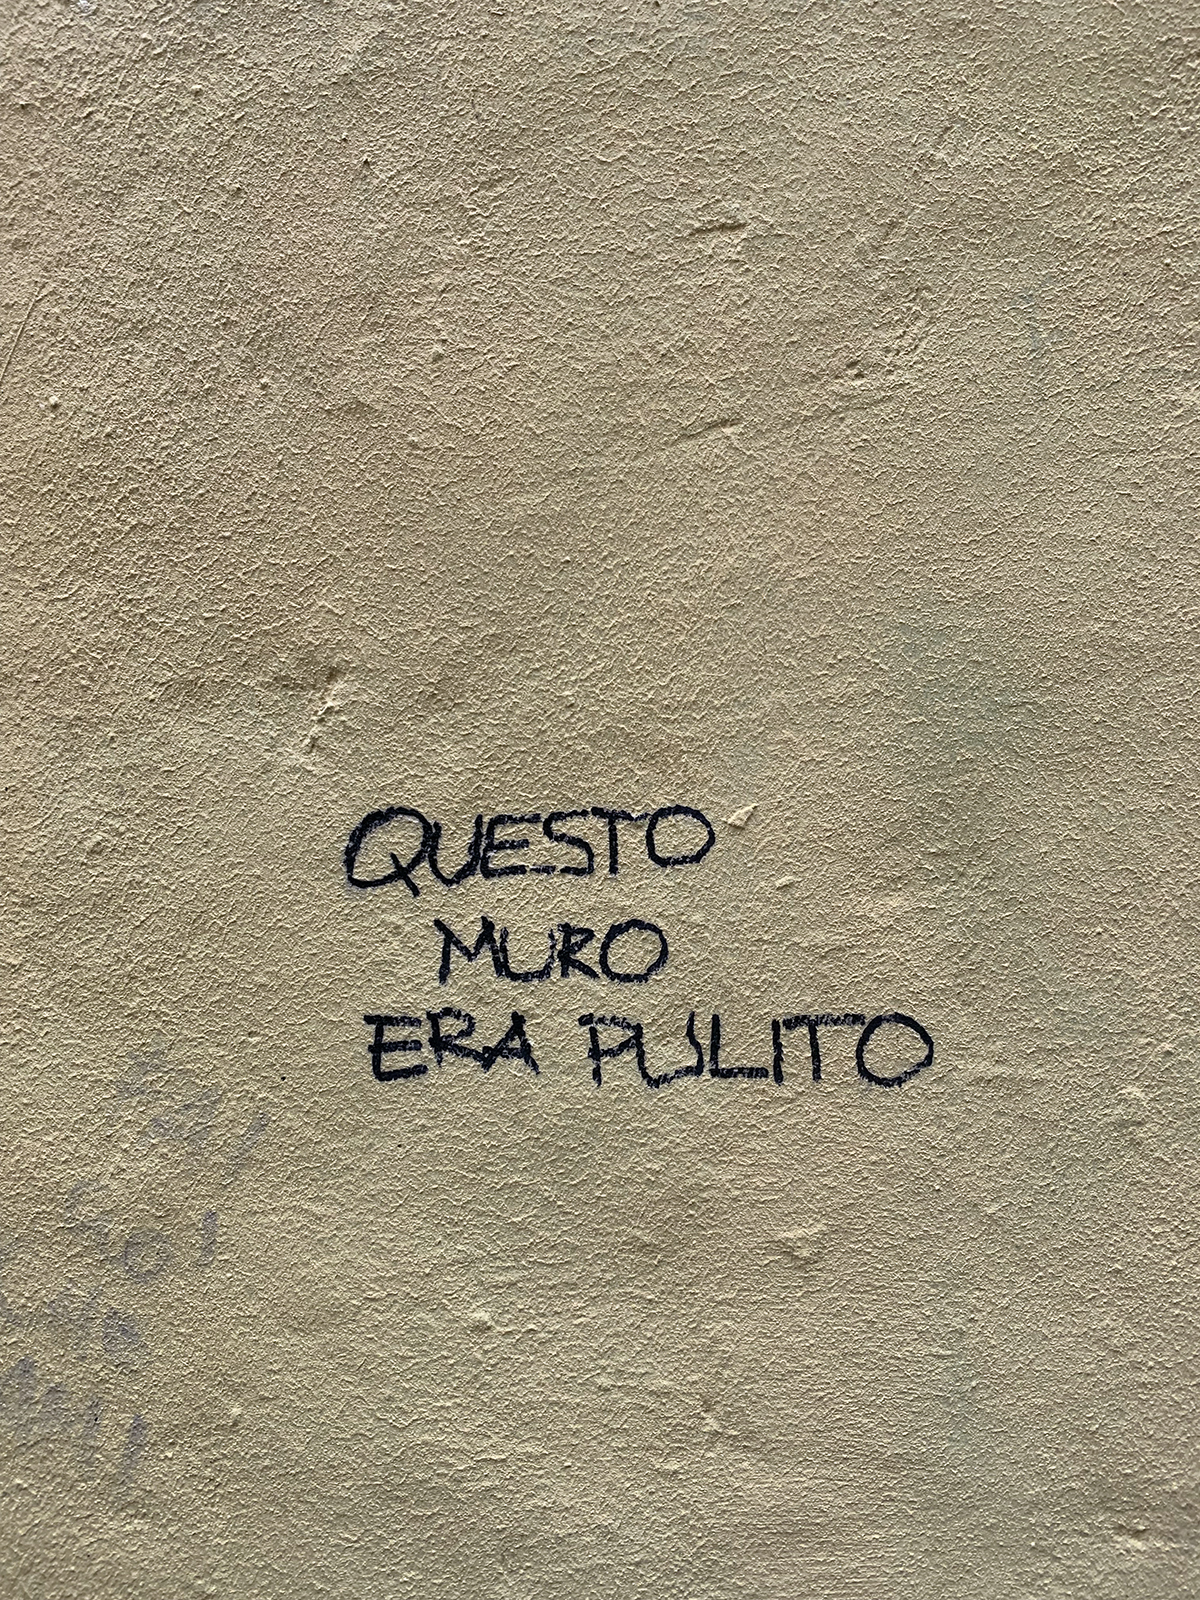 QUESTO
MURO
ERA PULITO